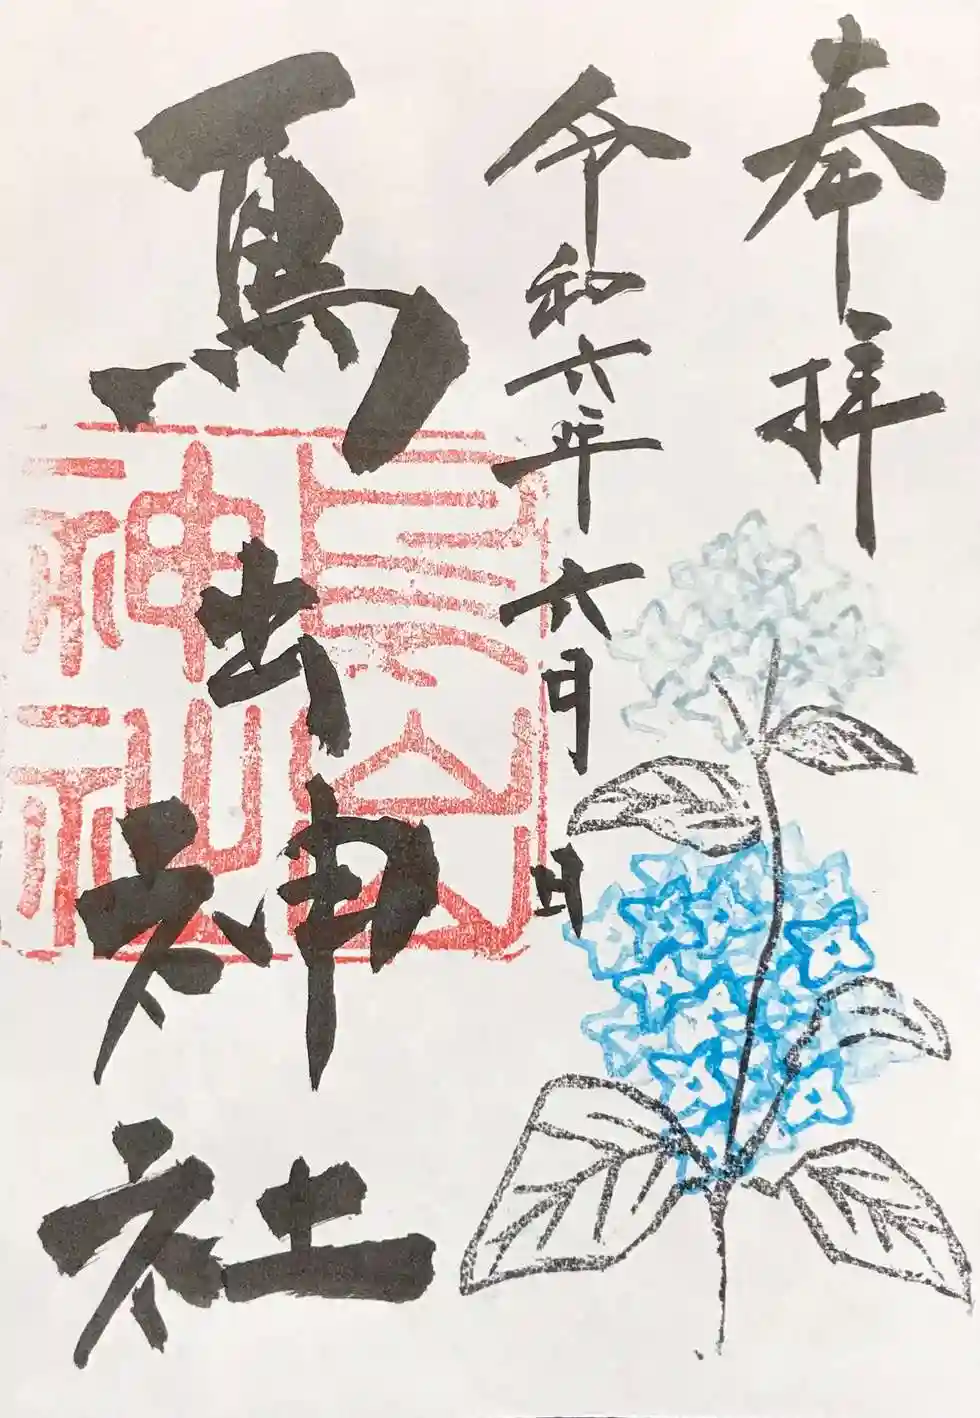 奉拝
令和六年六月 日
馬出神社
馬出神社